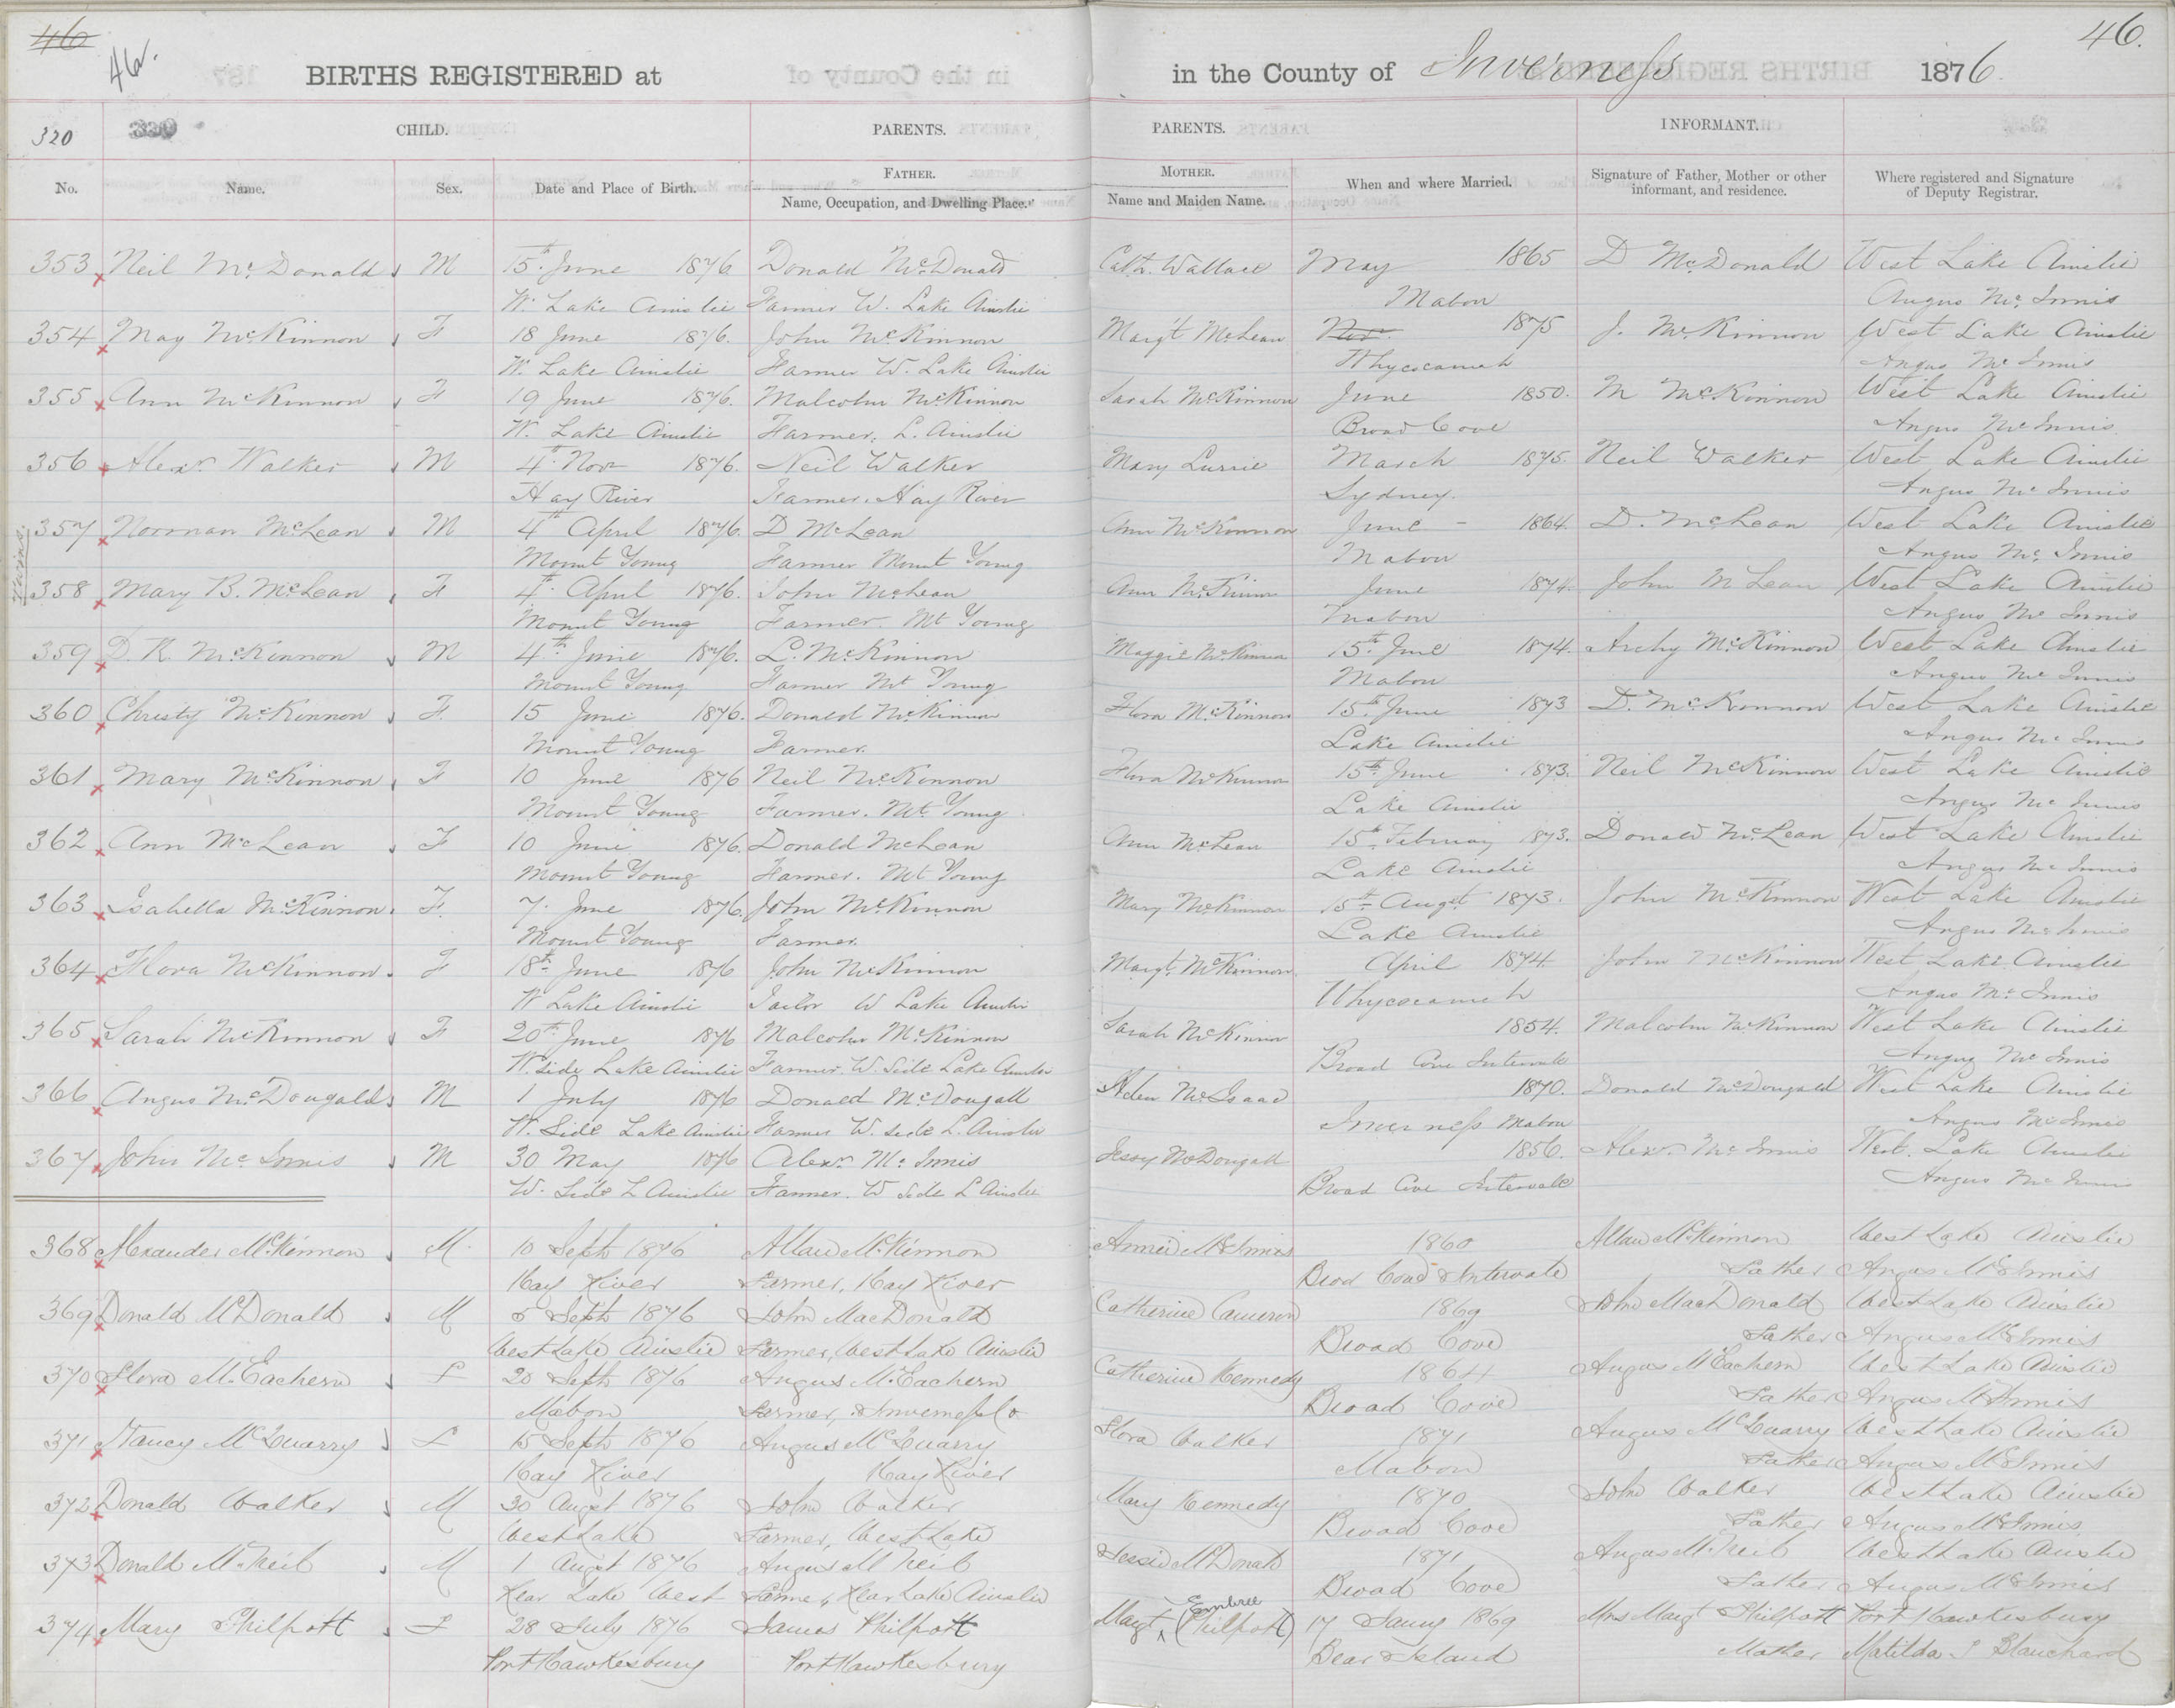 46
46.
46.
BIRTHS REGISTERED at in the County of Inverness 1876
320 CHILD. PARENTS. PARENTS. INFORMANT.
No. Name. Sex. Date and Place of Birth. FATHER. Name, Occupation, and Dwelling Place. MOTHER. Name and Maiden Name. When and where Married. Signature of Father, Mother or other informant, and residence. Where registered and Signature of Deputy Registrar.
353 Neil McDonald M 15th June 1876 Donald McDonald Cath. Wallace May 1865 D McDonald West Lake Ainslie
W. Lake Ainslie Farmer W. Lake Ainslie Mabou Angus McInnis
354 May McKinnon F 18 June 1876. John McKinnon Margt McLean Nov. 1875 J. McKinnon West Lake Ainslie
W. Lake Ainslie Farmer W. Lake Ainslie Whycocamah Angus McInnis
355 Ann McKinnon F 19 June 1876. Malcolm McKinnon Sarah McKinnon June 1850. M McKinnon West Lake Ainslie
W. Lake Ainslie Farmer, L. Ainslie Broad Cove Angus McInnis
356 Alexr Walker M 4th Novr 1876. Neil Walker Mary Currie March 1875. Neil Walker West Lake Ainslie
Hay River Farmer. Hay River Sydney. Angus McInnis
Twins.
357 Norman McLean M 4th April 1876. D McLean Ann McKinnon June - 1864. D. McLean West Lake Ainslie
Mount Young Farmer Mount Young Mabou Angus McInnis
358 Mary B. McLean F 4th April 1876. John McLean Ann McKinnon June 1874. John McLean West Lake Ainslie
Mount Young Farmer. Mt Young Mabou Angus McInnis
359 D. R. McKinnon M 4th June 1876. L. McKinnon Maggie McKinnon 15th June 1874. Archy McKinnon West Lake Ainslie
Mount Young Farmer Mt Young Mabou Angus McInnis
360 Christy McKinnon F. 15 June 1876. Donald McKinnon Flora McKinnon 15th June 1873 D. McKinnon West Lake Ainslie
Mount Young Farmer. Lake Ainslie Angus McInnis
361 Mary McKinnon F 10 June 1876 Neil McKinnon Flora McKinnon 15th June 1873. Neil McKinnon West Lake Ainslie
Mount Young Farmer. Mt Young Lake Ainslie Angus McInnis
362 Ann McLean F 10 June 1876. Donald McLean Ann McLean 15th February 1873. Donald McLean West Lake Ainslie
Mount Young Farmer. Mt Young Lake Ainslie Angus McInnis
363 Isabella McKinnon F. 7. June 1876. John McKinnon Mary McKinnon 15th Augt 1873. John McKinnon West Lake Ainslie
Mount Young Farmer. Lake Ainslie Angus McInnis
364 Flora McKinnon F 18th June 1876 John McKinnon Margt. McKinnon April 1874 John McKinnon West Lake Ainslie
W Lake Ainslie Tailor W Lake Ainslie Whycocamah Angus McInnis
365 Sarah McKinnon F 20th June 1876 Malcolm McKinnon Sarah McKinnon 1854. Malcolm McKinnon West Lake Ainslie
W. Side Lake Ainslie Farmer. W. Side Lake Ainslie Broad Cove Intervale Angus McInnis
366 Angus McDougald M 1 July 1876 Donald McDougall Helen McIsaac 1870. Donald McDougald West Lake Ainslie
W. Side Lake Ainslie Farmer W. side L. Ainslie Inverness Mabou Angus McInnis
367 John McInnis M 30 May 1876 Alexr McInnis Jessy McDougall 1856. Alexr McInnis West. Lake Ainslie
W. Side L Ainslie Farmer. W Side L Ainslie Broad Cove Intervale Angus McInnis
368 Alexander McKinnon M. 10 Sept 1876 Allan McKinnon Annie McInnis 1860 Allan McKinnon West Lake Ainslie
Hay River Farmer, Hay River Brod Coad Intervale Father Angus McInnis
369 Donald McDonald M 5 Sept 1876 John MacDonald Catherine Cameron 1869 John MacDonald West Lake Ainslie
West Lake Ainslie Farmer, West Lake Ainslie Broad Cove Father Angus McInnis
370 Flora McEachern F 20 Sept 1876 Angus McEachern Catherine Kennedy 1864 Angus McEachern West Lake Ainslie
Mabou Farmer, Inverness Co Broad Cove Father Angus McInnis
371 Nancy McQuarry F 15 Sept 1876 Angus McQuarry Flora Walker 1871 Angus McQuarry West Lake Ainslie
Hay River Hay River Mabou Father Angus McInnis
372 Donald Walker M 30 Augst 1876 John Walker Mary Kennedy 1870 John Walker West Lake Ainslie
West Lake Farmer, West Lake Broad Cove Father Angus McInnis
373 Donald McNeil M 1 Augst 1876 Angus McNeil Jessie McDonald 1871 Angus McNeil West Lake Ainslie
Rear Lake West Farmer, Rear Lake Ainslie Broad Cove Father Angus McInnis
374 Mary Philpott F 28 July 1876 James Philpott Margt Embree (Philpott) 17 Jany 1869 Mrs Margt Philpott Port Hawkesbury
Port Hawkesbury Port Hawkesbury Bear Island Mother Matilda J Blanchard